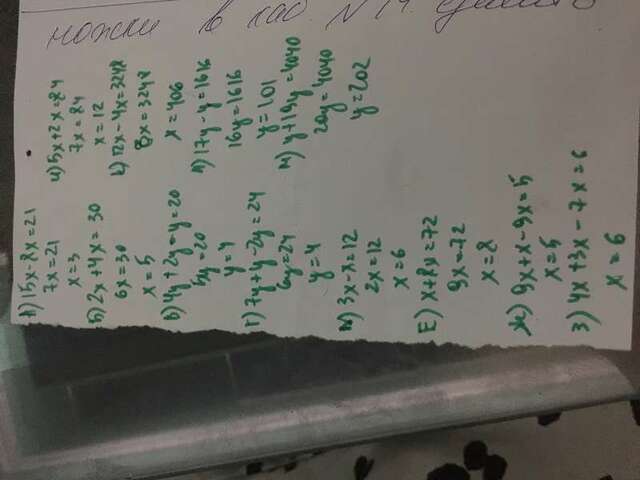 А) 15x-8x=21
7x=21
x=3
Б) 2x+4x=30
6x=30
x=5
В) 4y+2y-y=20
5y=20
y=4
Г) 7y+y-2y=24
6y=24
y=4
Д) 3x-x=12
2x=12
x=6
Е) x+8x=72
9x=72
x=8
Ж) 9x+x-9x=5
x=5
З) 4x+3x-7x=6
x=6
и) 5x+2x=84
7x=84
x=12
к) 12x-4x=3248
8x=3248
x=406
л) 17y-y=1616
16y=1616
y=101
м) y+19y=4040
20y=4040
y=202